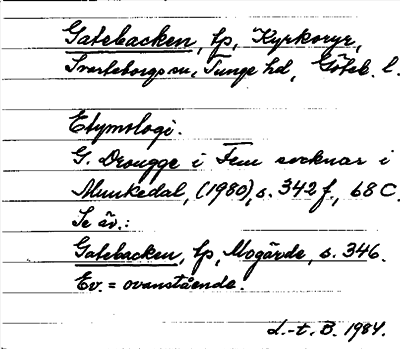 Gatebacken, tp, Kyrkoryr,
Svarteborgs sn, Tunge hd, Göteb. l.
Etymologi.
G. Drougge i Fem socknar i
Munkedal, (1980), s. 342 f, 68 C.
Se äv.:
Gatebacken, tp, Mogärde, s. 346.
Ev. = ovanstående.
L.-t. B. 1984.